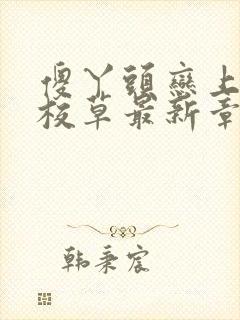 傻丫頭戀上
校草最新章
韩秉宸